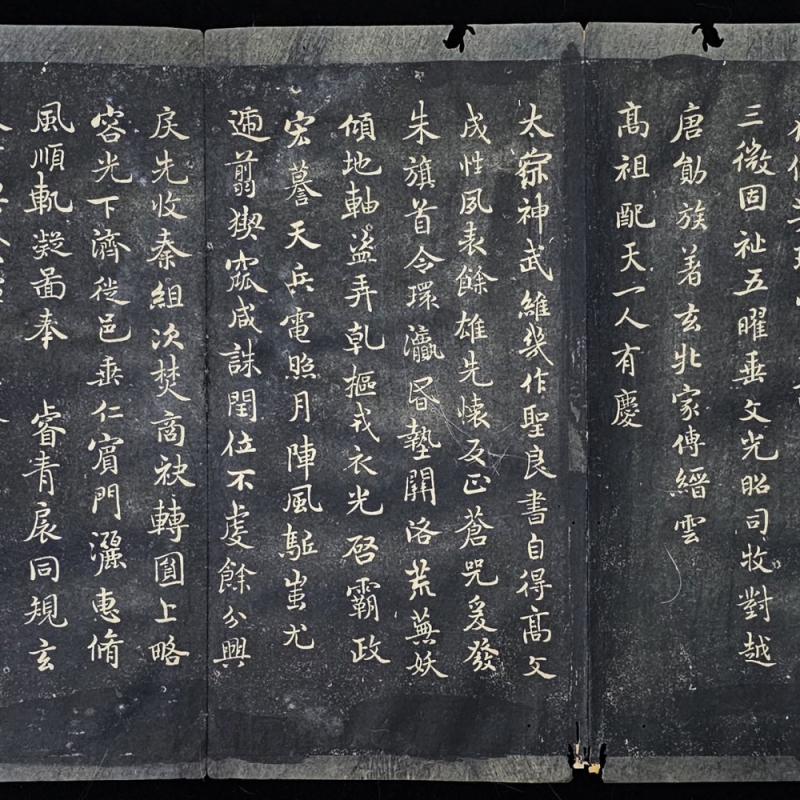 三微固祉五曜垂文光昭司牧對越
唐勛族著玄牝家傳縉雲
高祖配天一人有慶
太宗神武維幾作聖良書自得高文
成性夙表餘雄先懷反正蒼兕爰發
朱旗首令環瀛昬墊關洛荒蕪妖
傾地軸盜弄乹樞戎衣光啓霸政
宏謩天兵電照月陣風駈蚩尤
遄翦猰窳咸誅閏位不虔餘分興
戾先收秦組次焚商袂轉圓上略
容光下濟從邑垂仁賓門灑惠脩
風順軌凝圖奉 睿青扆同規玄